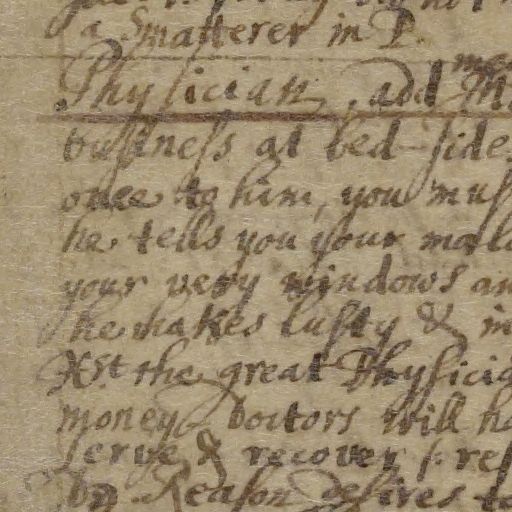 a Smatterer in P.
Physician, add
busſineſs at bed-ſide.
once to him, you muſ
he tells you your mala
your very windows an
he makes luſty & in
Xst the great Phyſicia
money. Doctors will ha
ſerve & recover
by Reaſon deſires to